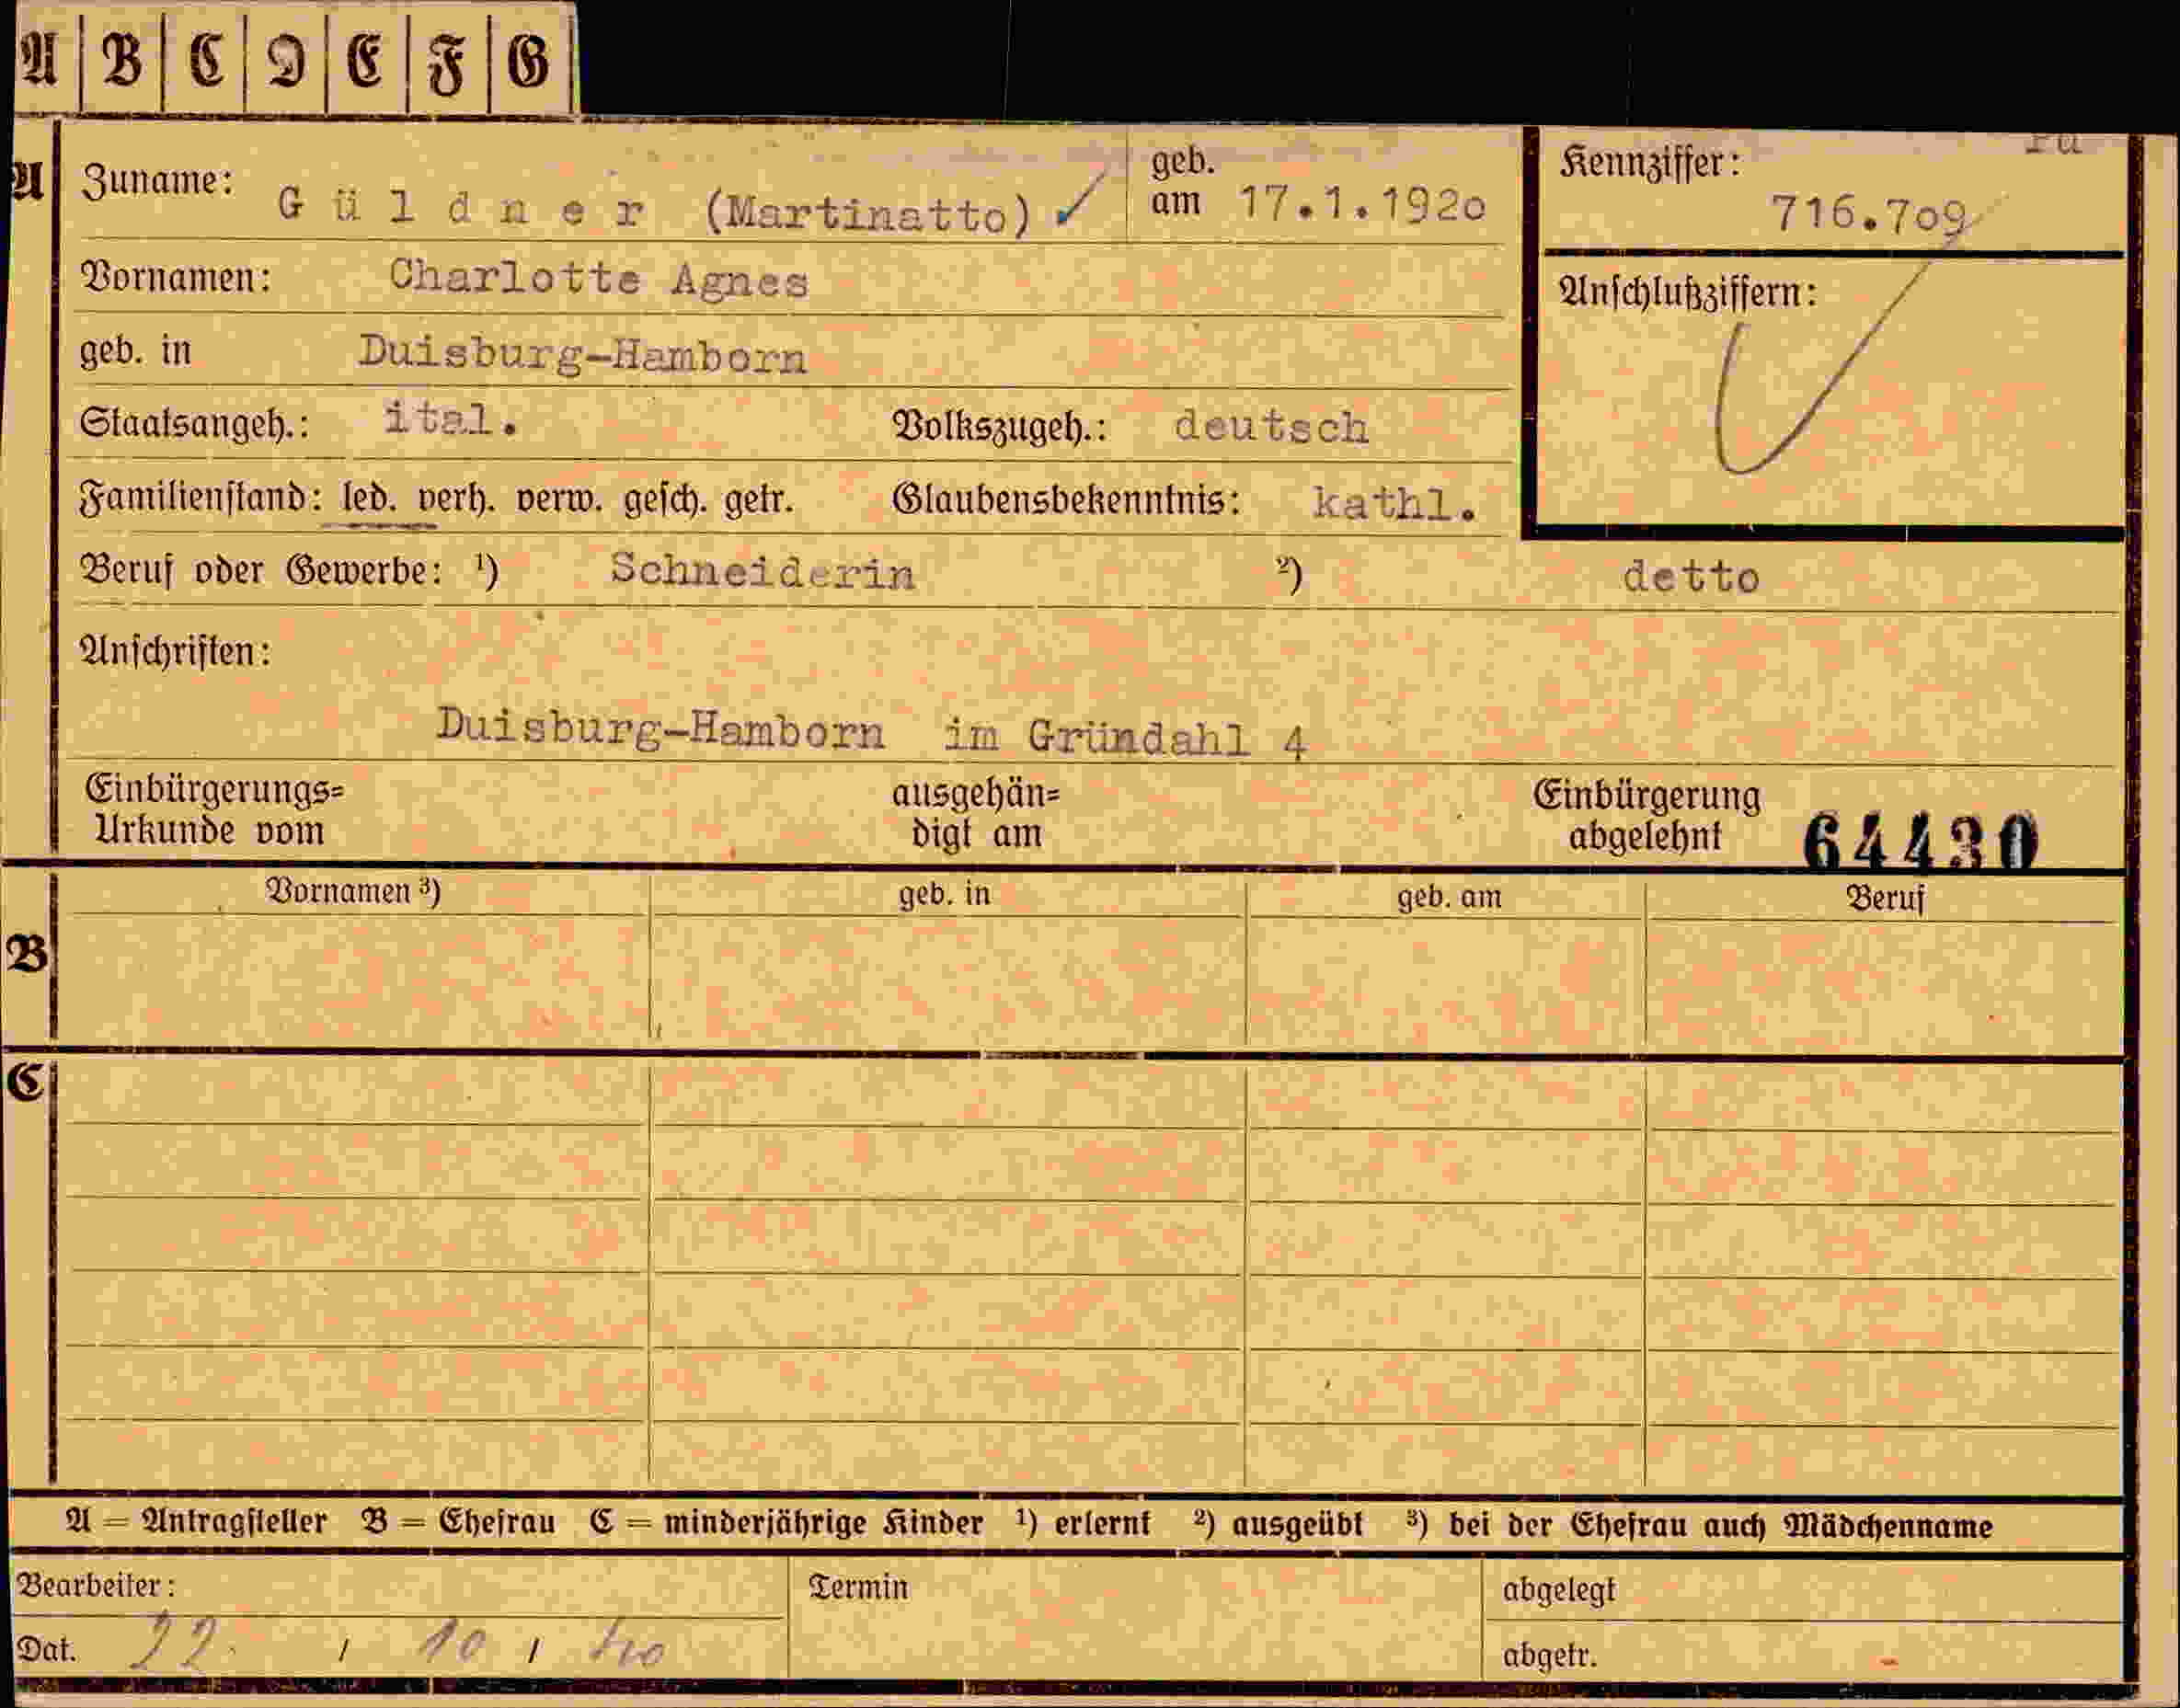 A B C D E F G
Pu
A Zuname: Güldner (Martinatto) ✓ geb. am 17.1.1920 Kennziffer: 716.709
Vornamen: Charlotte Agnes Anschlußziffern:
geb. in Duisburg-Hamborn
Staatsangeh.: ital. Volkszugeh.: deutsch
Familienstand: led. verh. verw. gesch. getr. Glaubensbekenntnis: kathl.
Beruf oder Gewerbe: ¹) Schneiderin ²) detto
Anschriften:
Duisburg-Hamborn im Gründahl 4
Einbürgerungs= ausgehän= Einbürgerung
Urkunde vom digt am abgelehnt 64430
Vornamen ³) geb. in geb. am Beruf
B
C
A = Antragsteller B = Ehefrau C = minderjährige Kinder ¹) erlernt ²) ausgeübt ³) bei der Ehefrau auch Mädchenname
Bearbeiter: Termin abgelegt
Dat. 22. / 10 / 40 abgetr.